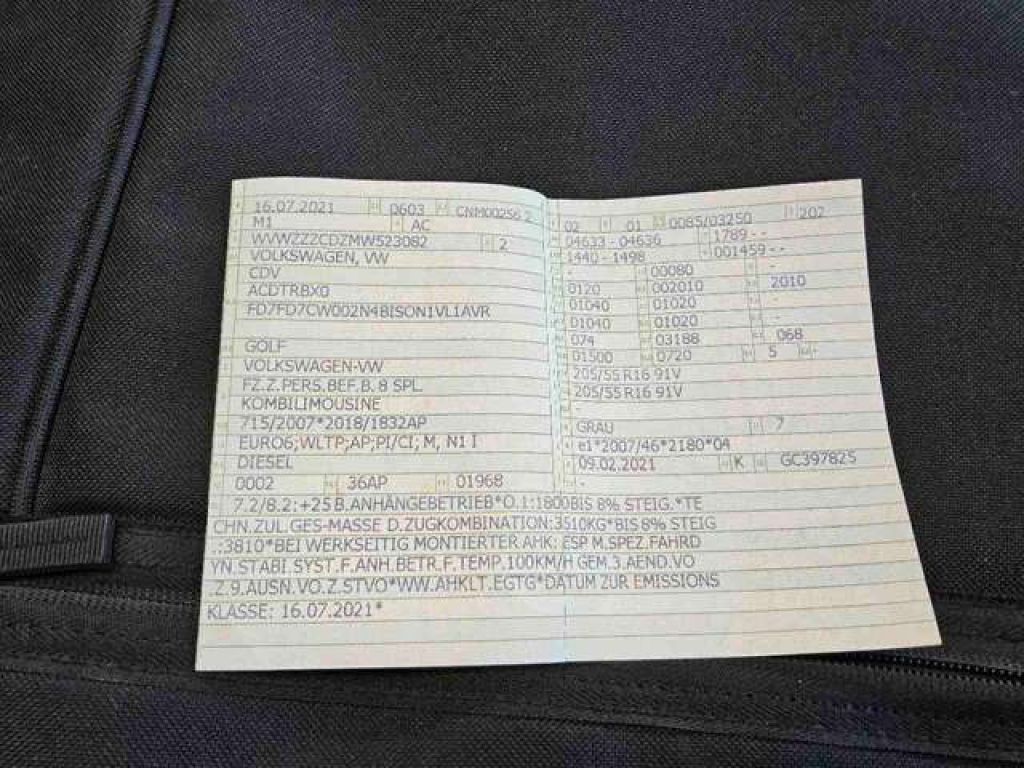 16.07.2021 0603 CNM00256 2
M1 AC
WVWZZZCDZMW523082 2
VOLKSWAGEN, VW
CDV
ACDTRBX0
FD7FD7CW002N4BISON1VL1AVR
GOLF
VOLKSWAGEN-VW
FZ.Z.PERS.BEF.B. 8 SPL.
KOMBILIMOUSINE
715/2007*2018/1832AP
EURO6;WLTP;AP;PI/CI; M, N1 I
DIESEL
0002 36AP 01968
02 01 0085/03250 202
04633 - 04636 1789 - -
1440 - 1498 001459 - -
- 00080 -
0120 002010 2010
01040 01020 -
01040 01020 -
074 03188 068
01500 0720 5 -
205/55 R16 91V
205/55 R16 91V
-
GRAU 7
e1*2007/46*2180*04
09.02.2021 K GC397825
-
7.2/8.2:+25 B.ANHÄNGEBETRIEB*O.1:1800BIS 8% STEIG.*TE
CHN.ZUL.GES-MASSE D.ZUGKOMBINATION:3510KG*BIS 8% STEIG
.:3810*BEI WERKSEITIG MONTIERTER AHK: ESP M.SPEZ.FAHRD
YN.STABI.SYST.F.ANH.BETR.F.TEMP.100KM/H GEM.3.AEND.VO
.Z.9.AUSN.VO.Z.STVO*WW.AHKLT.EGTG*DATUM ZUR EMISSIONS
KLASSE: 16.07.2021*